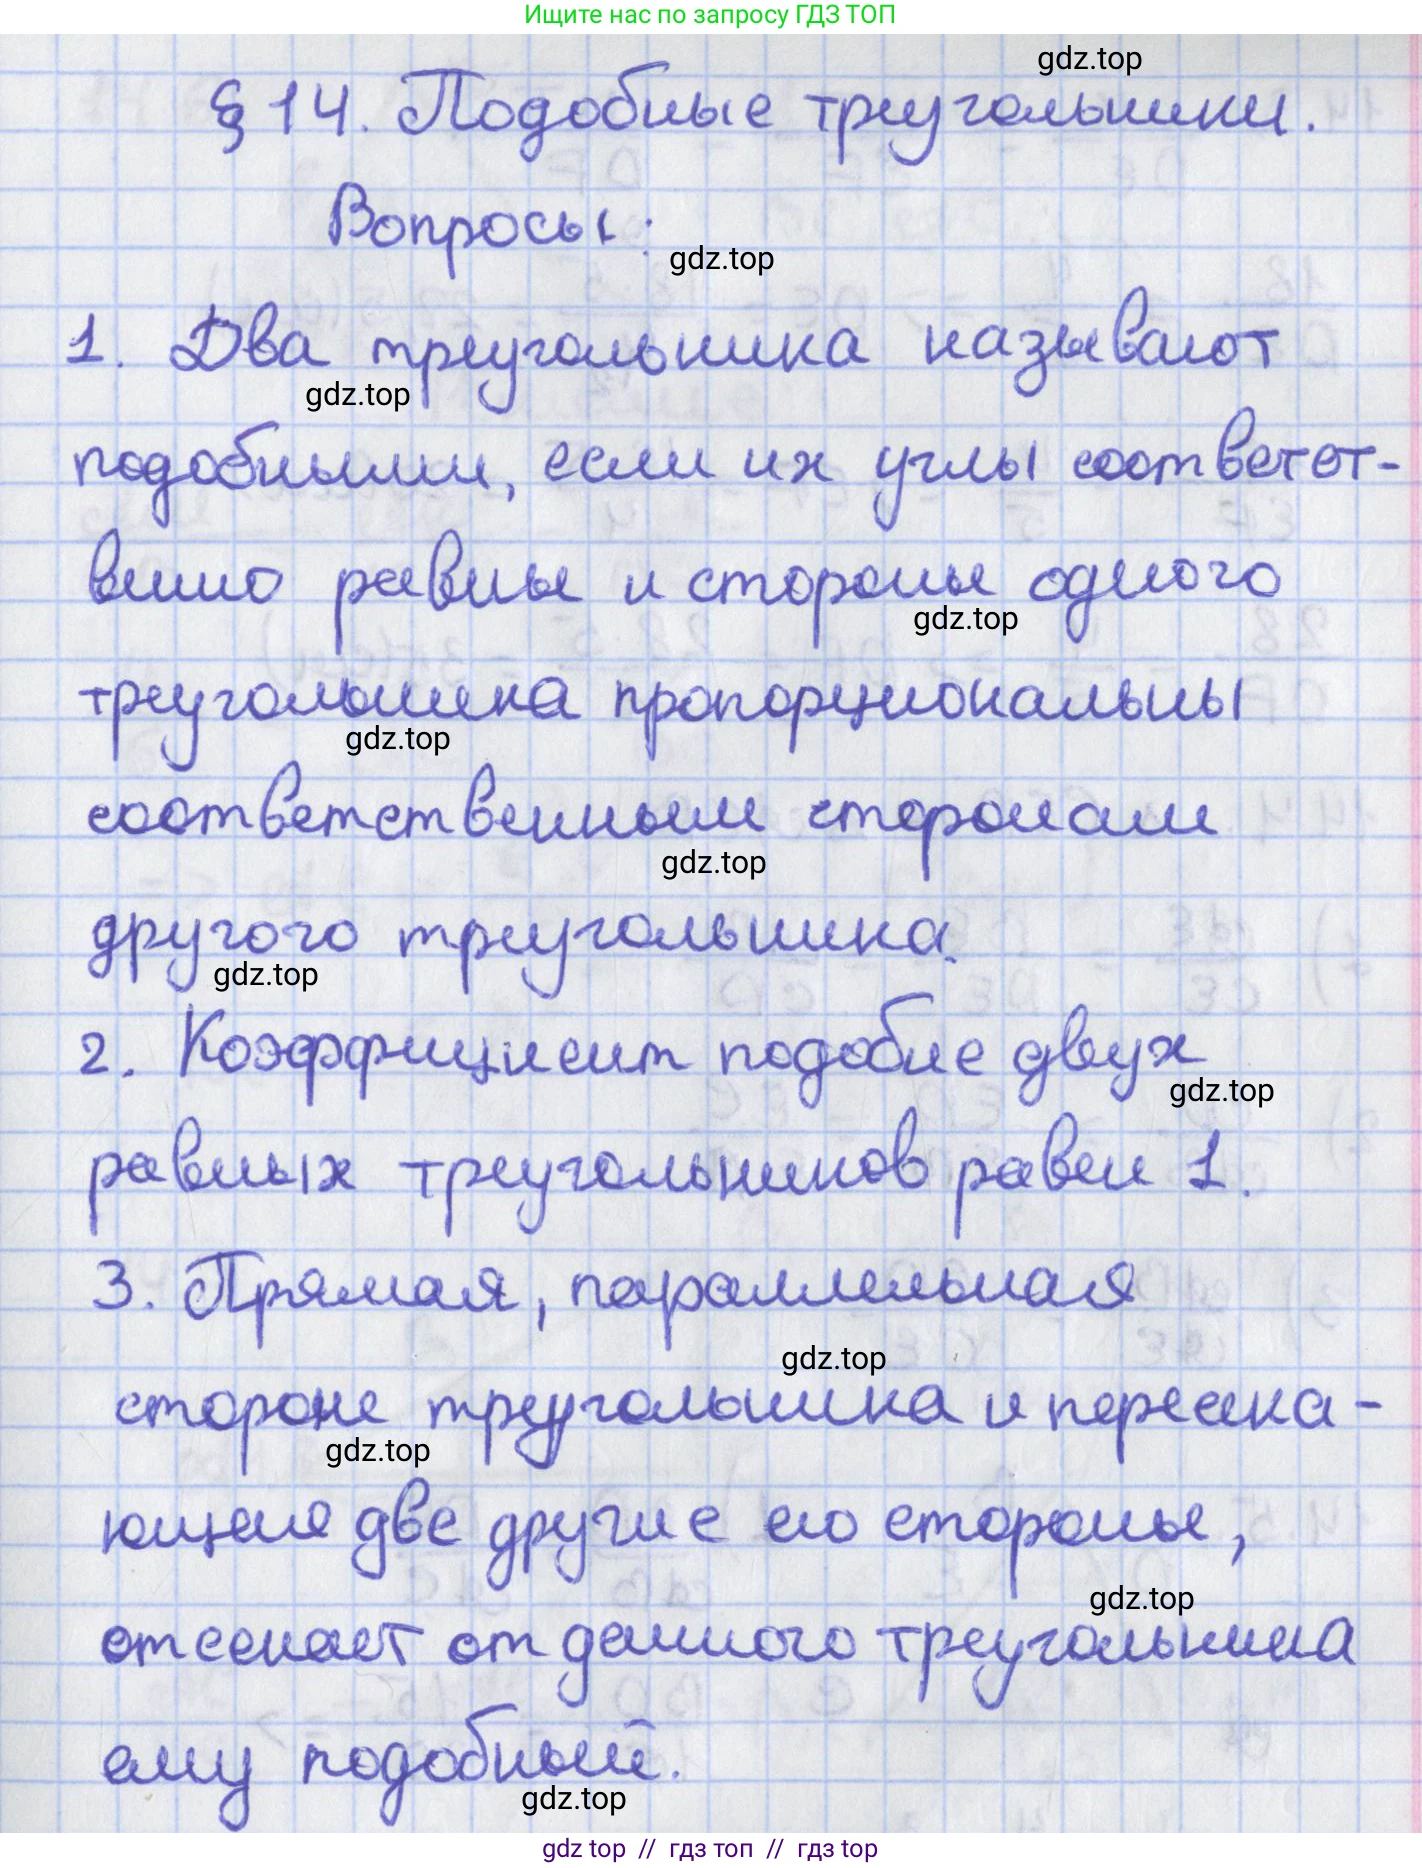 Ищите нас по запросу ГДЗ ТОП
gdz.top
§ 14. Подобные треугольники.
Вопросы:
gdz.top
1. Два треугольника называют
gdz.top
подобными, если их углы соответст-
венно равны и стороны одного
gdz.top
треугольника пропорциональны
gdz.top
соответственным сторонам
gdz.top
другого треугольника.
gdz.top
2. Коэффициент подобие двух
gdz.top
равных треугольников равен 1.
3. Прямая, параллельная
gdz.top
стороне треугольника и пересека-
gdz.top
ющая две другие его стороны,
gdz.top
отсекает от данного треугольника
ему подобный.
gdz.top
gdz top // гдз топ // гдз top